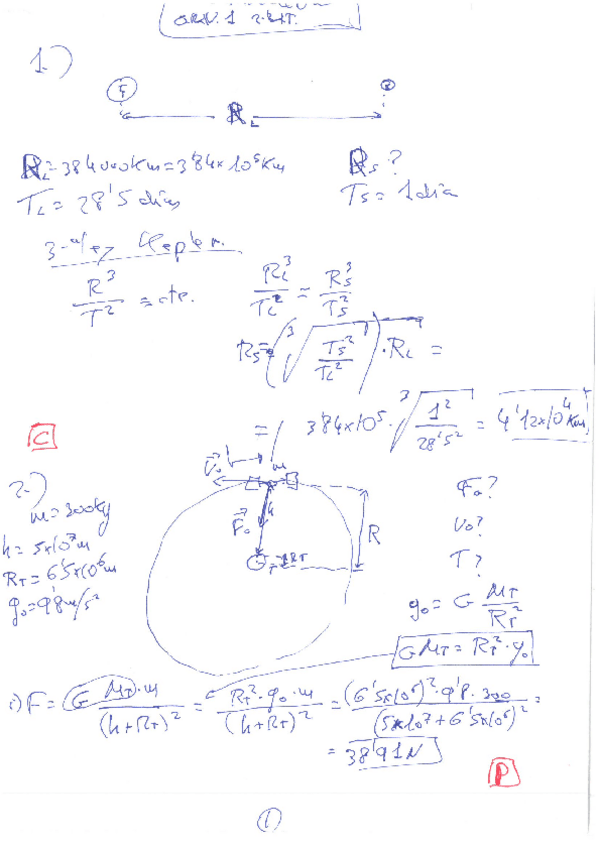 1.)
T
R_L
R_L = 384000 Km = 3'84×10⁵ Km
R_S ?
T_L = 28'5 días
T_S = 1 día
3ª ley Kepler.
R³/T² = cte.
R_L³/T_L² = R_S³/T_S²
R_S = (∛(T_S²/T_L²))·R_L =
= 3'84×10⁵·∛(1²/28'5²) = 4'12×10⁴ Km
C
2.)
m = 300 kg
h = 5×10⁷ m
R_T = 6'5×10⁶ m
g₀ = 9'8 m/s²
V₀
m
h
F₀
R
F₀?
V₀?
T?
g₀ = G M_T/R_T²
G M_T = R_T²·g₀
i) F = G M_T·m/(h+R_T)² = R_T²·g₀·m/(h+R_T)² = (6'5×10⁶)²·9'8·300/(5×10⁷+6'5×10⁶)² =
= 38'91 N
P
1